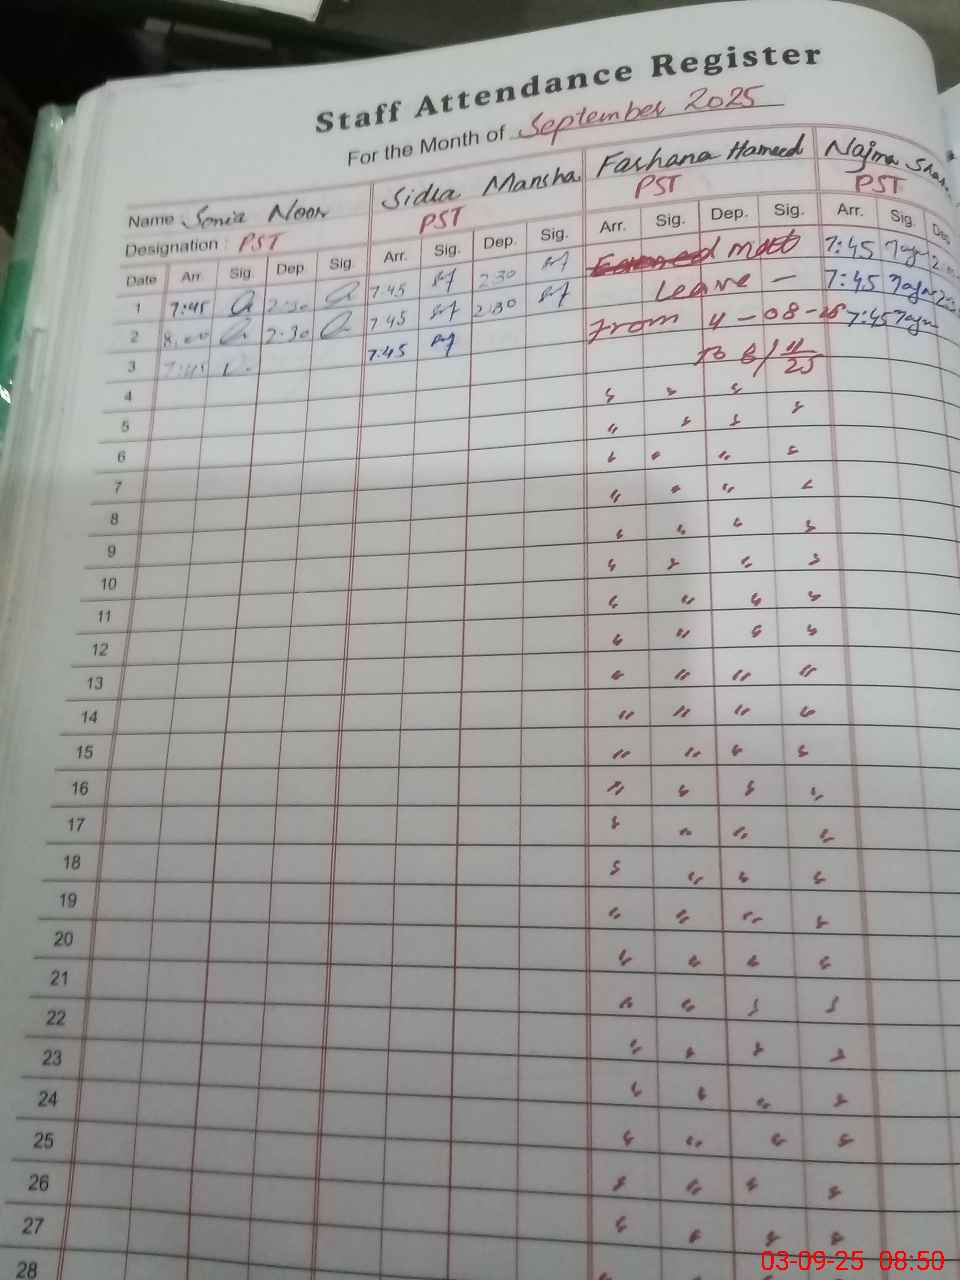 Staff Attendance Register
For the Month of September 2025
Name Sonia Noor Sidra Mansha Farhana Hameed Najma
Designation : PST PST PST PST
Date Arr. Sig. Dep. Sig. Arr. Sig. Dep. Sig. Arr. Sig. Dep. Sig. Arr. Sig.
1 7:45 2:30 7:45 2:30 7:45
2 8:00 2:30 7:45 2:30 Leave - 7:45
3 7:45 7:45 From 4-08-25 7:45
to 6/11/25
4
5
6
7
8
9
10
11
12
13
14
15
16
17
18
19
20
21
22
23
24
25
26
27
28
03-09-25 08:50